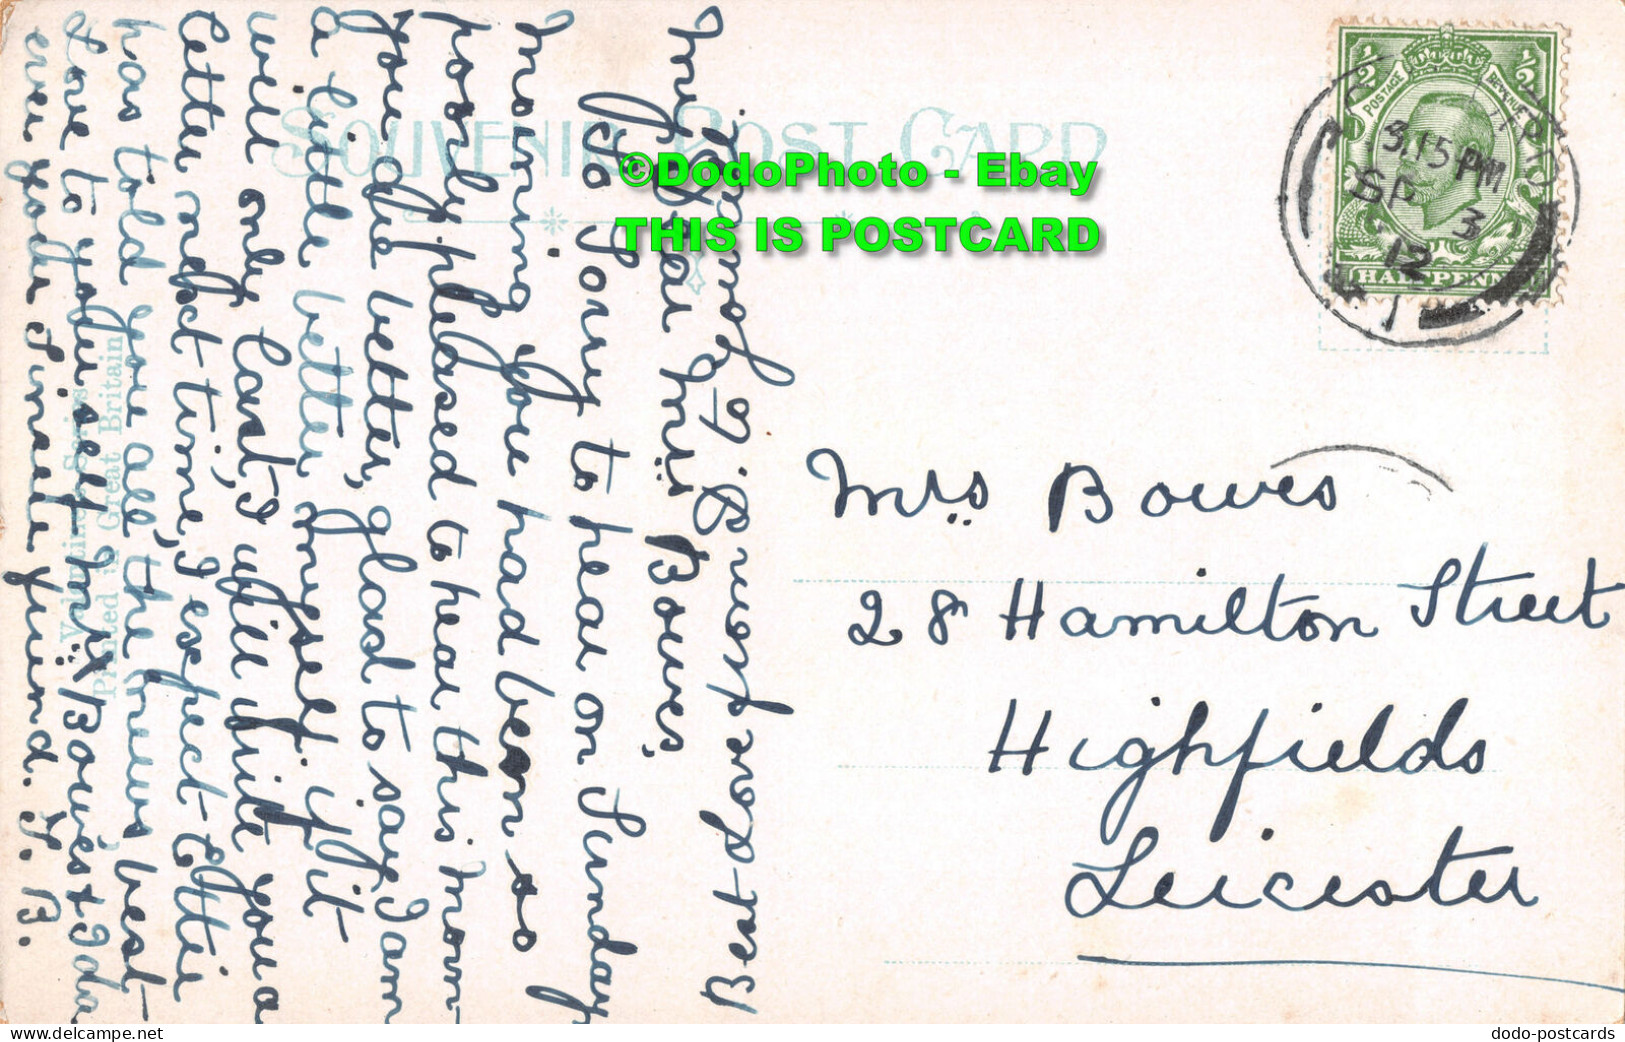 SOUVENIR POST CARD
©DodoPhoto - Ebay
THIS IS POSTCARD
1/2 1/2
POSTAGE REVENUE
HALFPENNY
3.15 PM
SP 3
12
1
Mrs Bowes
28 Hamilton Street
Highfields
Leicester
My Dear Mrs Bowes,
so Sorry to hear on Sunday
morning you had been so
poorly pleased to hear this morn
you are better, glad to say I am
a little better myself, if it
will only last, I will write you a
letter next time, I expect Ettie
has told you all the news best
Love to yourself Mr Bowes & Ida
ever your Sincere friend. F. B.
Valentines Series
Printed in Great Britain
dodo-postcards
www.delcampe.net